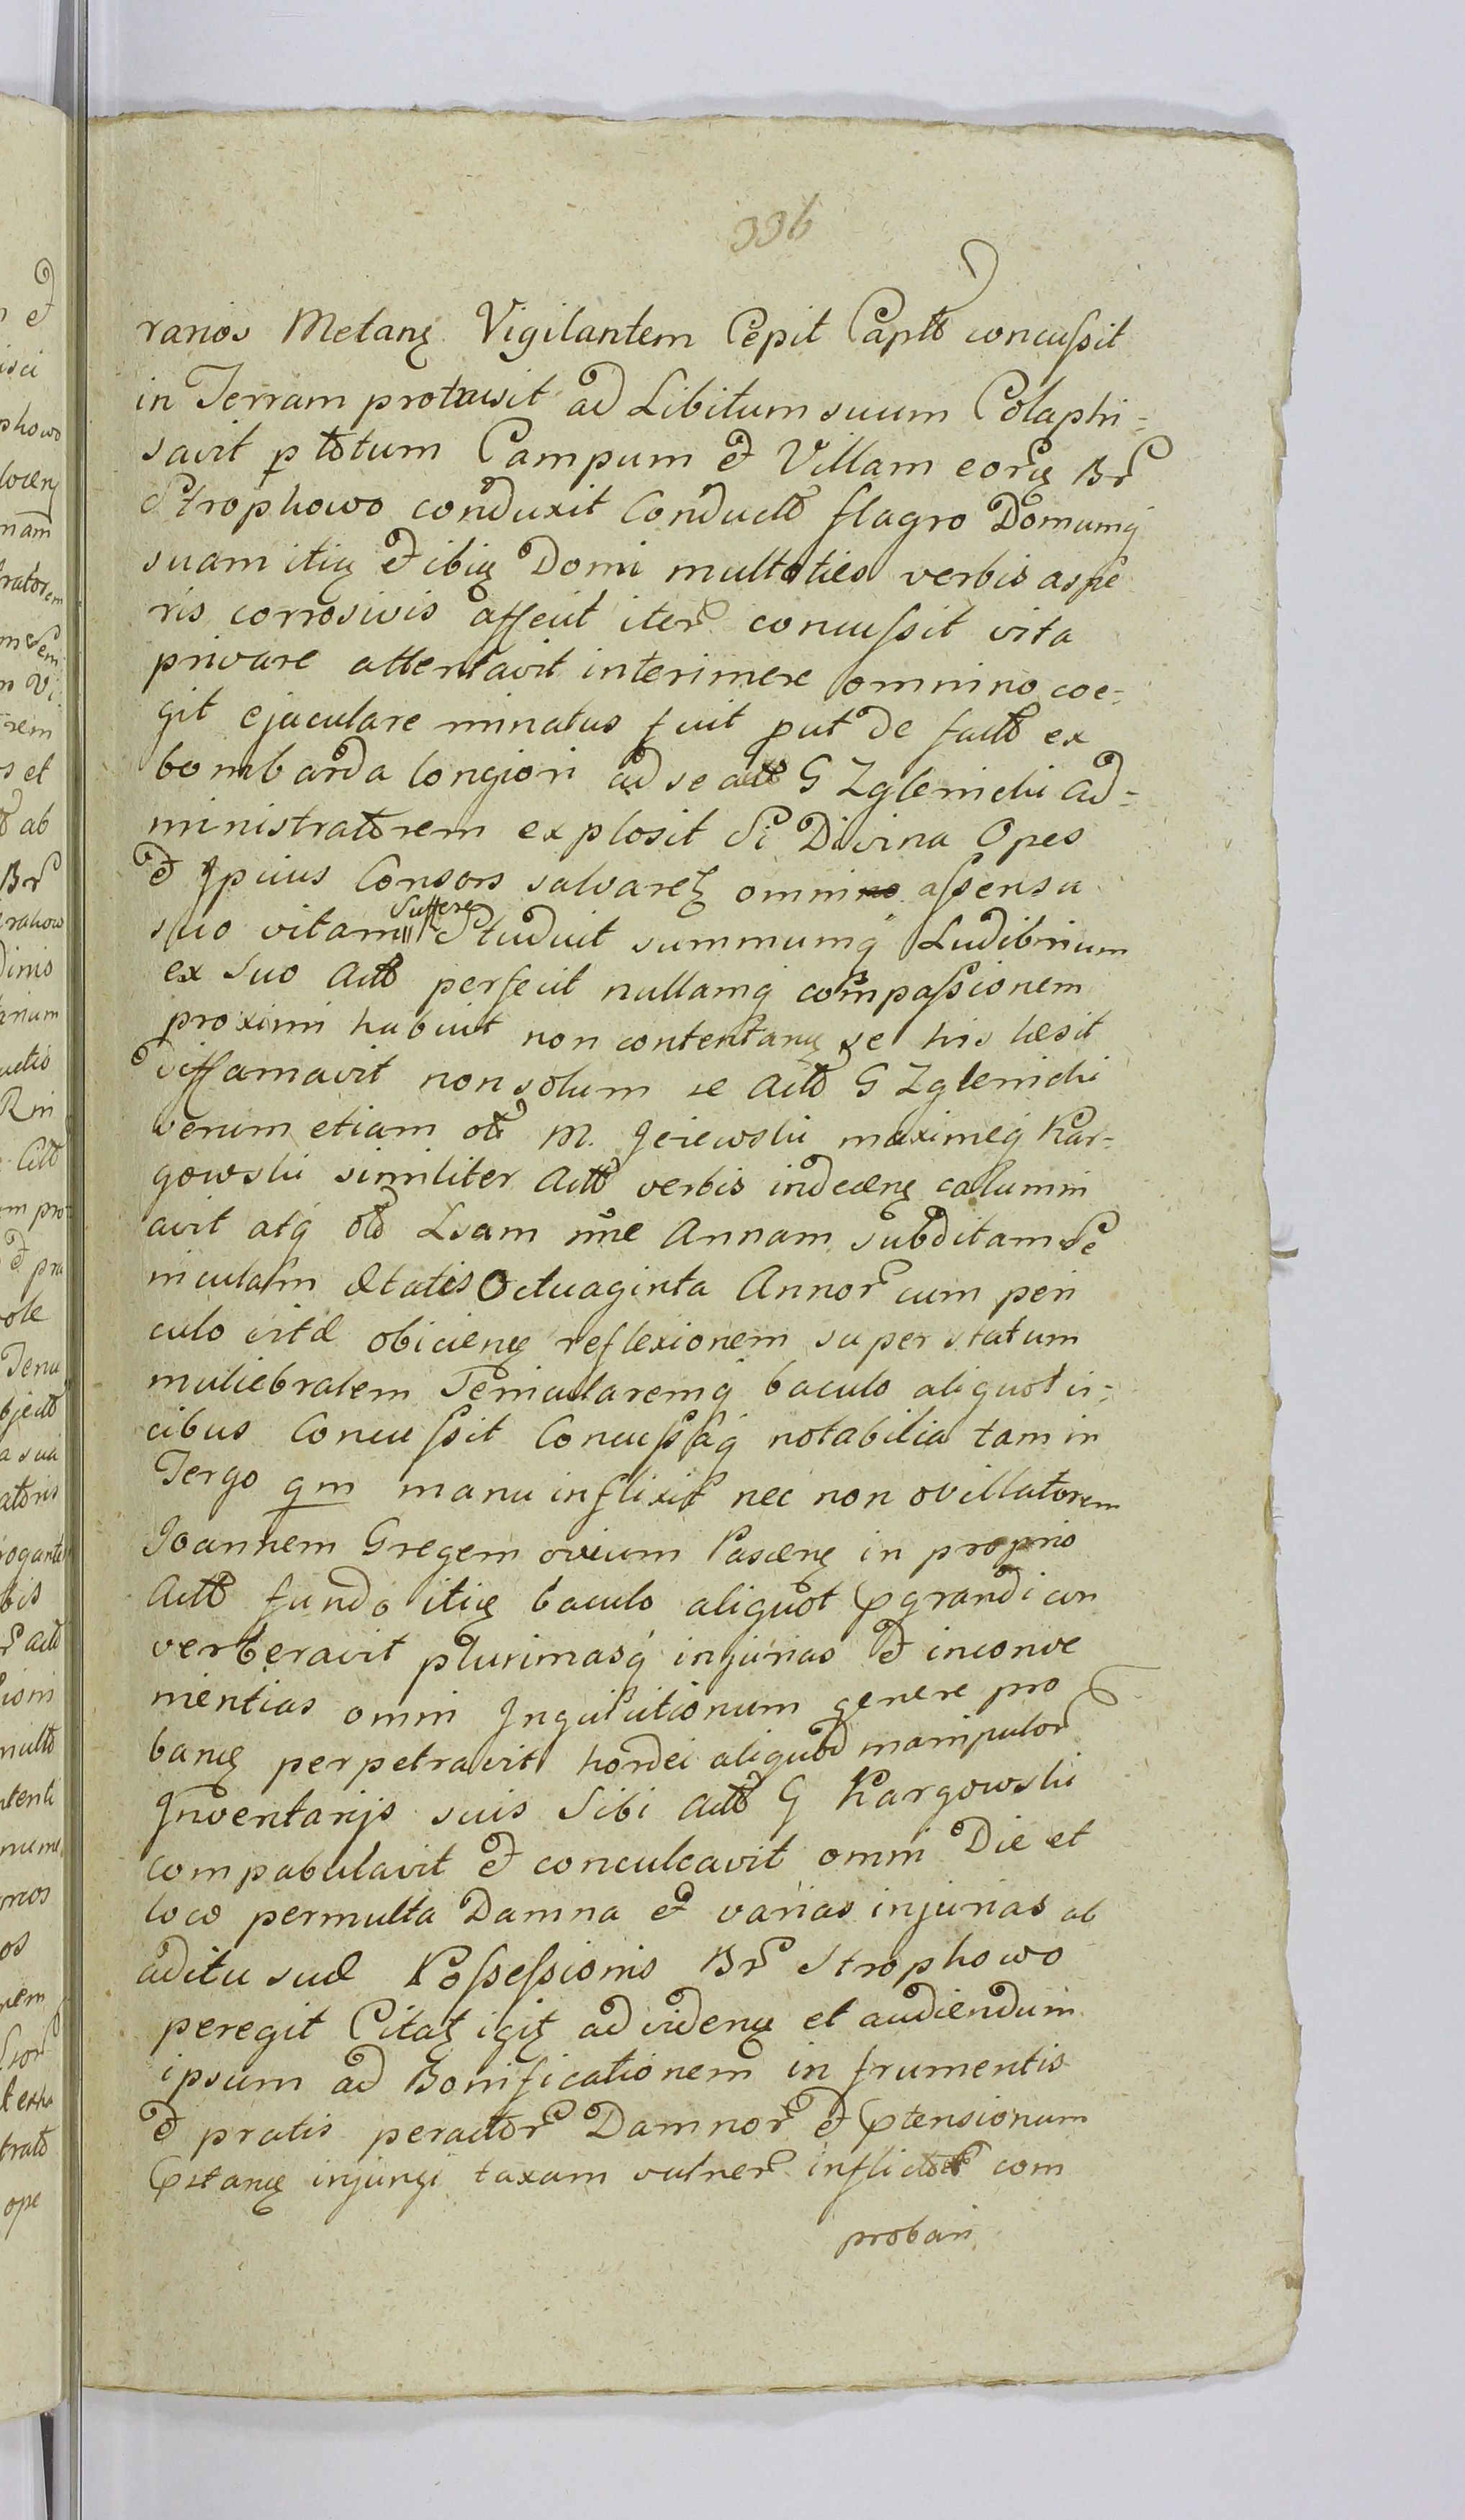 336
rarios Metanę Vigilantem Cepit Captō concuſsit
in Terram protrusit ad Libitum suum Colaphi=
savit p totum Campum et Villam eorę Br
Strophowo conduxit Conductō flagro Domumq́
suam itię et ibię Domi multoties verbis aspe
ris corrosivis affecit iter concuſsit vita
privare attentavit interimere omnino coe=
git ejaculare minatus fuit put de factō ex
bombarda longiori ad se actō G Zglenicki ad=
ministratorem explosit Si Divina Opes
et Ipsius Consors salvaretę omnino aſsensu
suo vitam Suffere Studuit summumq́ Ludibrium
ex suo Actō perfecit nullamq́ compaſsionem
proximi habuit non contentanę se his læsit
diffamavit non solum se Actō G Zglenicki
verum etiam otō M. Jeiewski maximeq́ Kar=
gowski similiter Actō verbis indecenę calumni
avit atq́ otō Lsam nne Annam subditam Se
niculam ætatis Octuaginta Annor cum peri
culo vitæ obicienę reflexionem super statum
muliebralem Senicularemq́ baculo aliquot ic=
cibus Concuſsit Concuſsaq́ notabilia tam in
Tergo qm manu inflixit nec non ovillatorem
Joannem Gregem ovium Pascenę in proprio
Actō fundo itię baculo aliquot pgrandi con
verberavit plurimasq́ injurias et inconve
nientias omni Inquisitionum genere pro
banę perpetravit hordei aliquod manipulor
Inventarijs suis Sibi Actō G Kargowski
compabulavit et conculcavit omni Die et
loco permulta Damna et varias injurias ab
aditu suæ Poſseſsionis Br Strophowo
peregit Citatę igitę ad videnę et audiendum
ipsum ad Bonificationem in frumentis
et pratis peractor Damnor et ptensionum
pstanę injungi taxam vulner inflictor com
probari